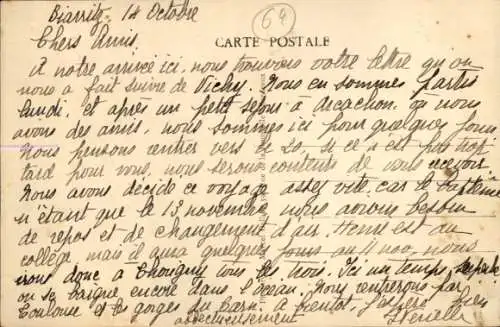 Biarritz, 14 Octobre
64
CARTE POSTALE
Chers Amis
A notre arrivée ici, nous trouvons votre lettre qu'on
nous a fait suivre de Vichy. Nous en sommes partis
lundi, et après un petit séjour à Arcachon, où nous
avons des amis, nous sommes ici pour quelques jours
Nous pensons rentrer vers le 20, si ce n'est pas trop
tard pour vous, nous serons contents de vous recevoir.
Nous avons décidé ce voyage assez vite, car le baptême
n'étant que le 13 novembre nous avions besoin
de repos et de changement d'air. est au
collège mais il a quelques jours au 11 nov, nous
irons donc à Thouguy tous les trois. Ici un temps superbe
on se baigne encore dans l'océan. Nous rentrerons par
Toulouse et les gorges du Tarn. A bientôt j'espère bien
affectueusement